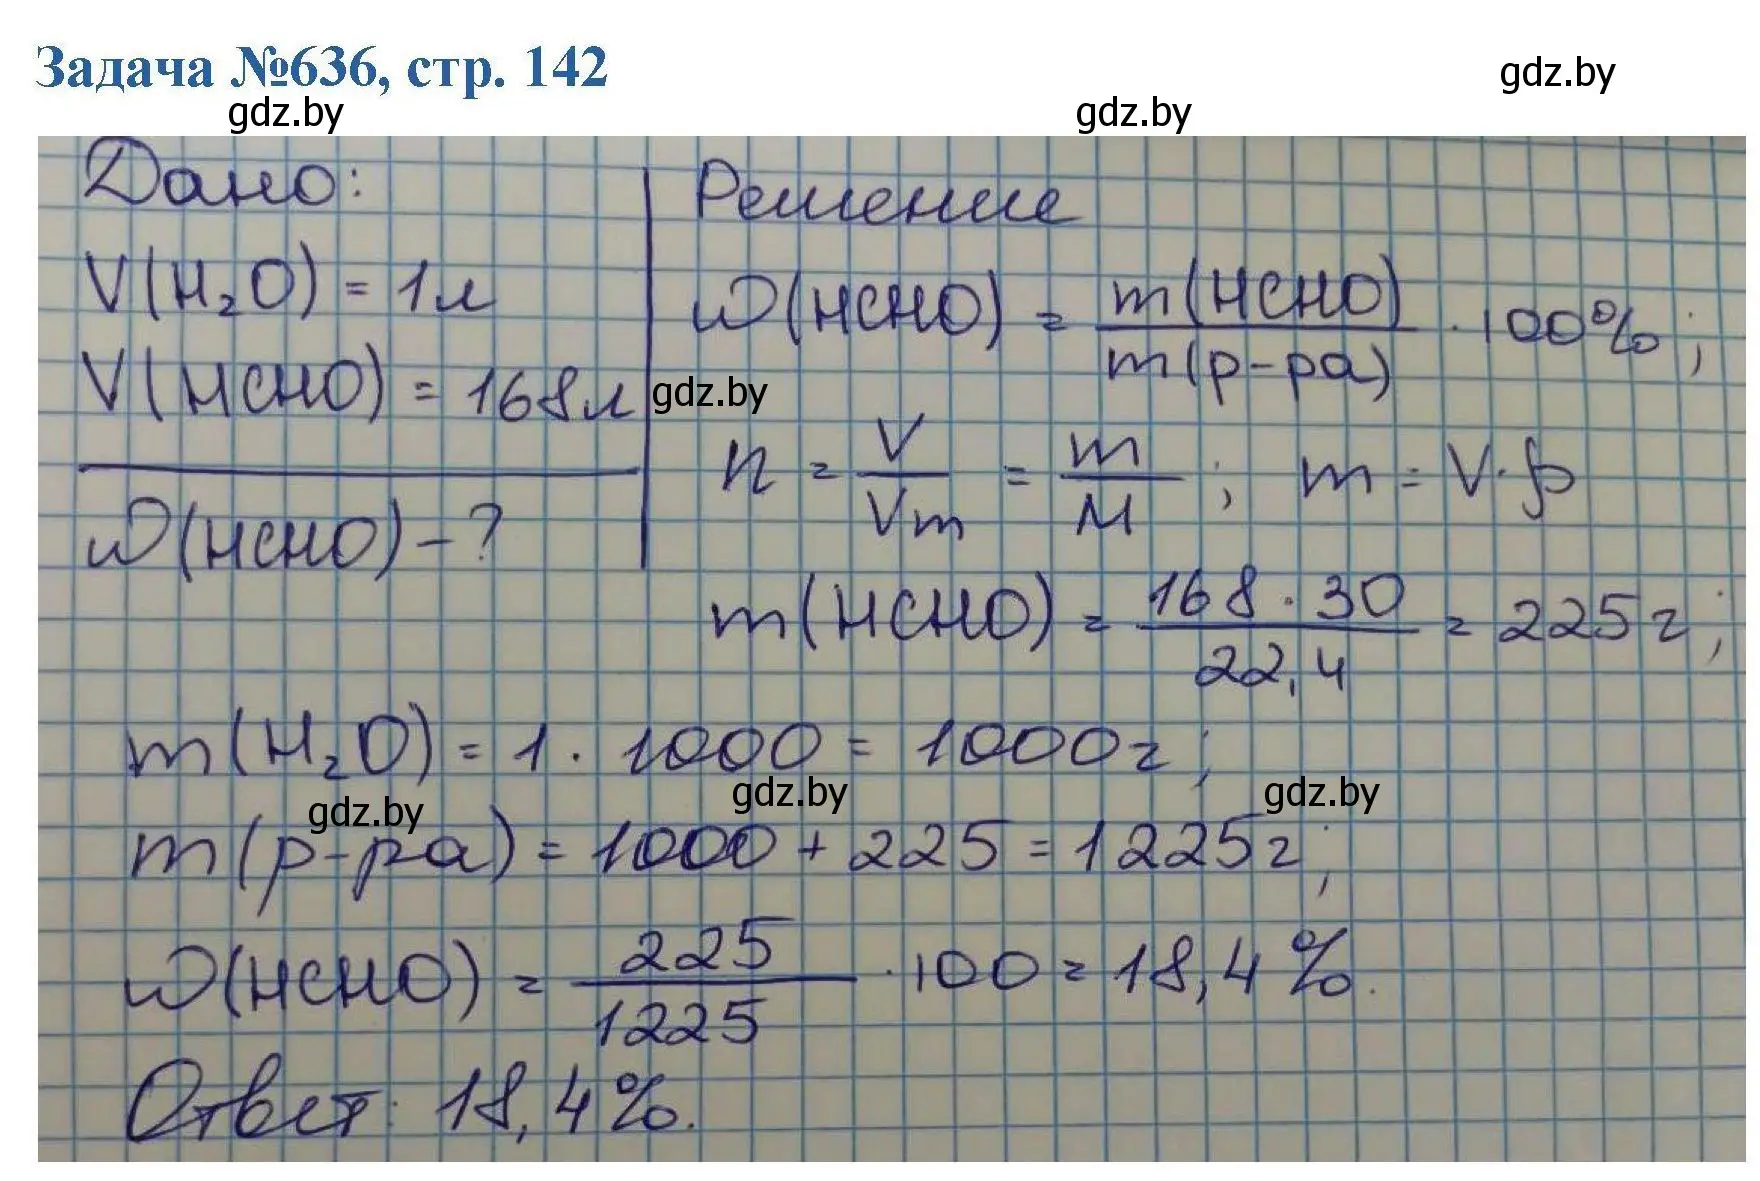 Задача №636, стр. 142
gdz.by
gdz.by
gdz.by
Дано:
V(H₂O) = 1л
V(HCHO) = 168л
ω(HCHO) - ?
Решение
ω(HCHO) = m(HCHO) / m(р-ра) · 100%;
gdz.by
n = V / Vm = m / M ; m = V·ρ
m(HCHO) = 168 · 30 / 22,4 = 225г;
m(H₂O) = 1 · 1000 = 1000г;
gdz.by
gdz.by
gdz.by
m(р-ра) = 1000 + 225 = 1225г;
ω(HCHO) = 225 / 1225 · 100 = 18,4%.
Ответ: 18,4%.